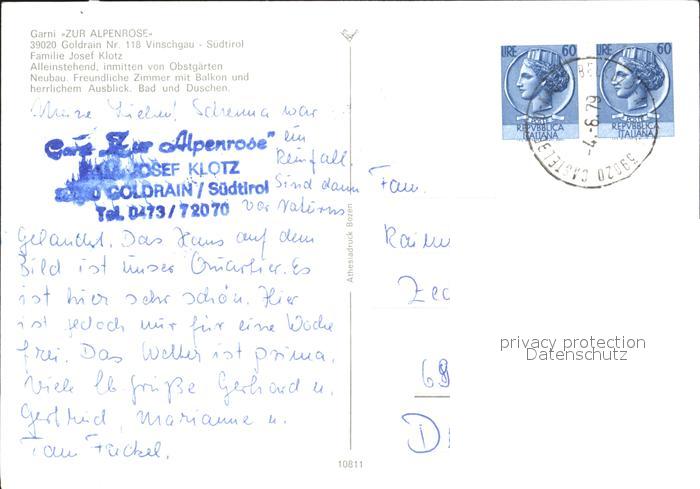 Garni «ZUR ALPENROSE»
39020 Goldrain Nr. 118 Vinschgau - Südtirol
Familie Josef Klotz
Alleinstehend, inmitten von Obstgärten
Neubau. Freundliche Zimmer mit Balkon und
herrlichem Ausblick. Bad und Duschen.
Meine Lieben! Schenna war
ein
Reinfall
sind dann
vor Naturns
gelandet. Das Haus auf dem
Bild ist unser Quartier. Es
ist hier sehr schön. Hier
ist jedoch nur für eine Woche
frei. Das Wetter ist prima.
Viele lb. Grüße Gerhard u.
Gertrud, Marianne u.
Fam. Fackel.
Garni Zur Alpenrose"
JOSEF KLOTZ
GOLDRAIN / Südtirol
Tel. 0473/72070
Athesiadruck Bozen
10811
LIRE 60
POSTE
REPVBBLICA
ITALIANA
LIRE 60
POSTE
REPVBBLICA
ITALIANA
39020 CASTELB
-4.-6.79
Fam.
Raine
Zec
69
D
privacy protection
Datenschutz